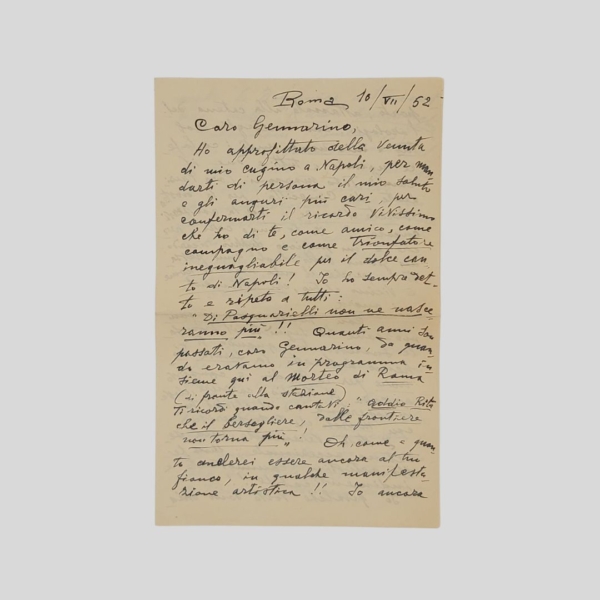 Roma 10/VII/52
Caro Gennarino,
Ho approfittato della venuta
di mio cugino a Napoli, per man
darti di persona il mio saluto
e gli auguri più cari, per
confermarti il ricordo ViVissimo
che ho di te, come amico, come
compagno e come Trionfatore
ineguagliabile per il dolce can
to di Napoli! Io ho sempre det-
to e ripeto a tutti:
"Di Pasquarielli non ne nasce-
ranno più!! Quanti anni son
passati, caro Gennarino, da quan
do eravamo in programma in-
sieme qui al Morteo di Roma
(di fronte alla stazione)
Ti ricordi quando cantaVi, "Addio Rita
che il bersagliere, dalle frontiere
non torna più"! Oh, come e quan
to anelerei essere ancora al tuo
fianco, in qualche manifesta-
zione artistica!! Io ancora